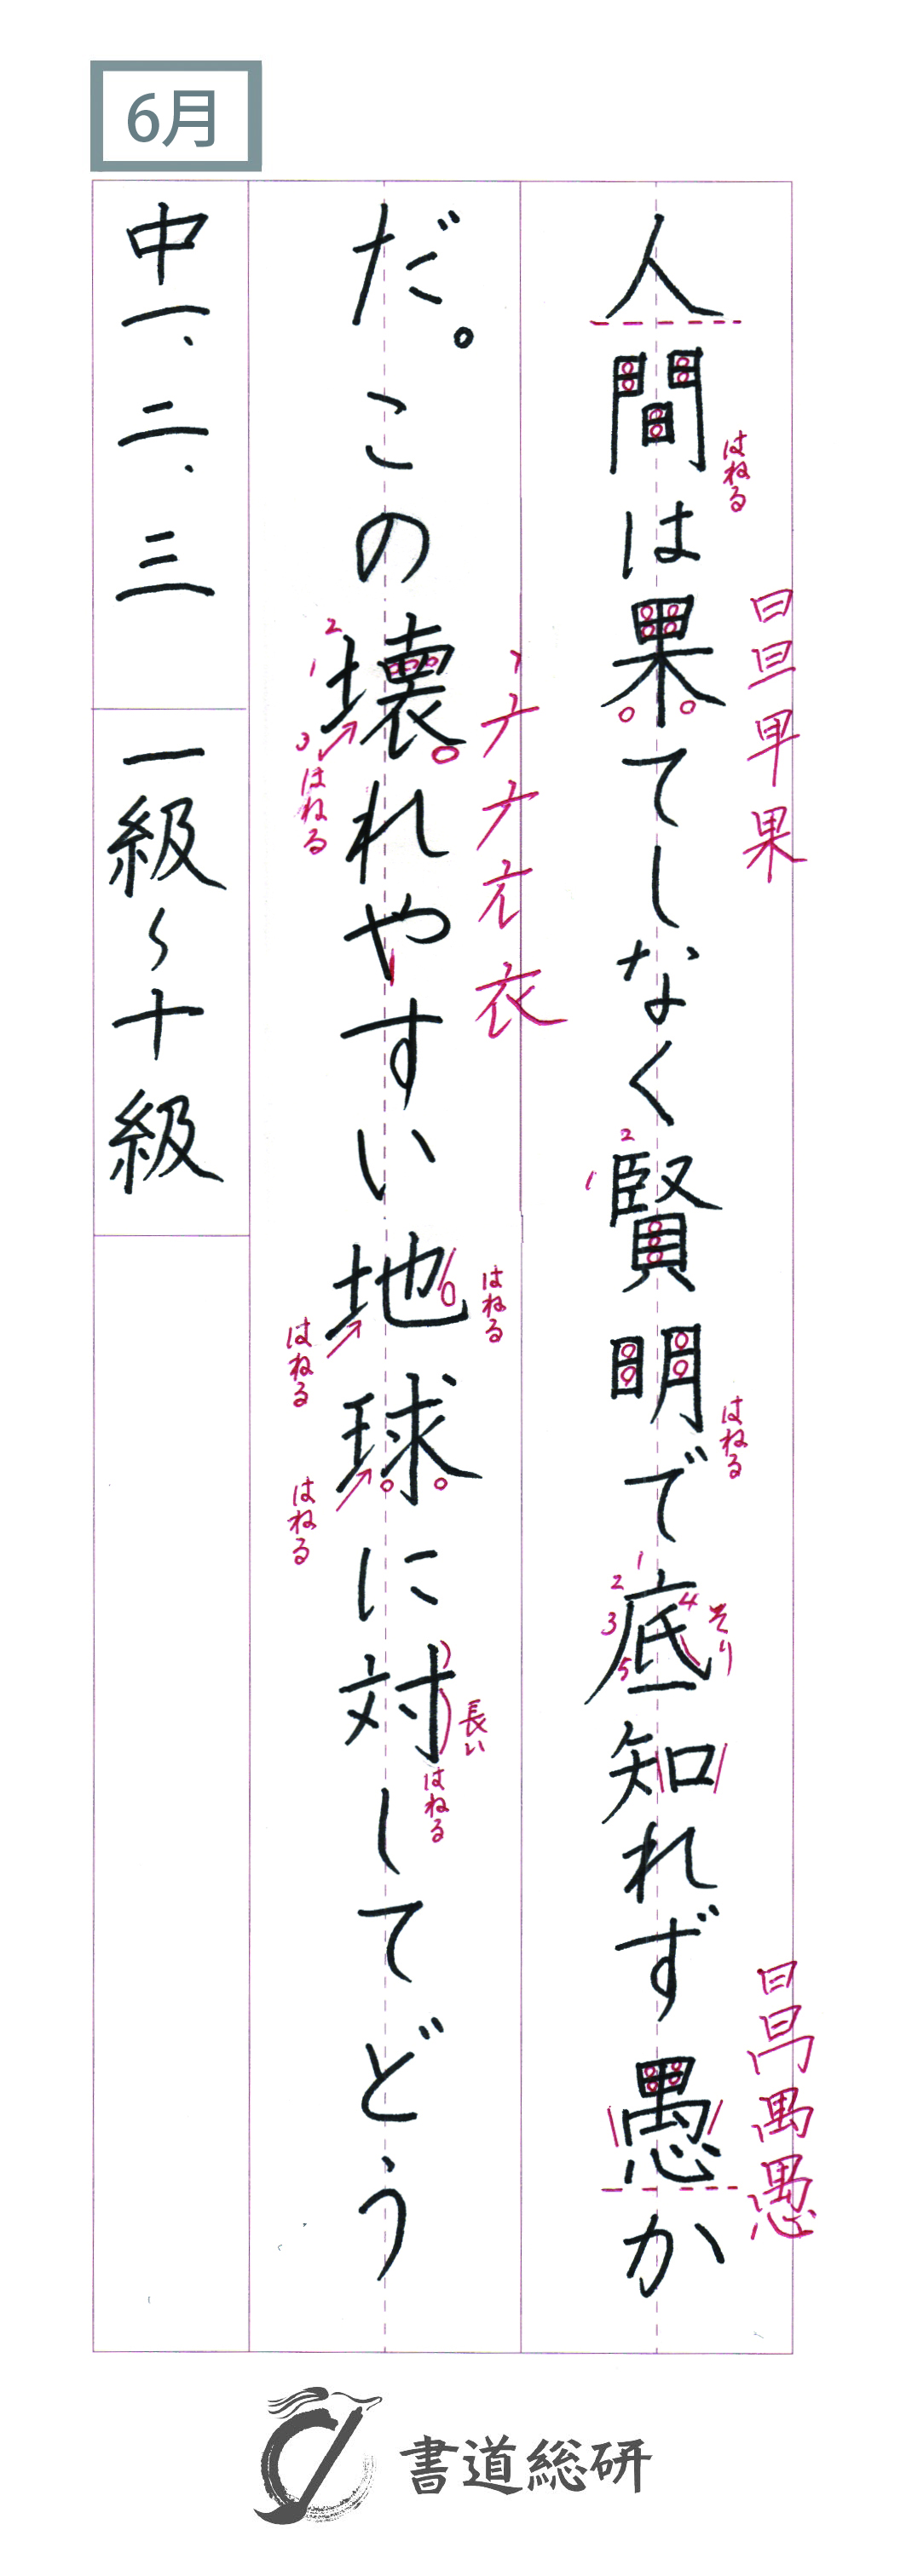 6月
人間は果てしなく賢明で底知れず愚か
だ。この壊れやすい地球に対してどう
中一、二、三 一級〜十級
はねる
日旦甲果
2
1
はねる
1
2
3
4
5
そり
日
禺愚
2
1
3
はねる
衣
はねる
はねる
はねる
長い
はねる
書道総研